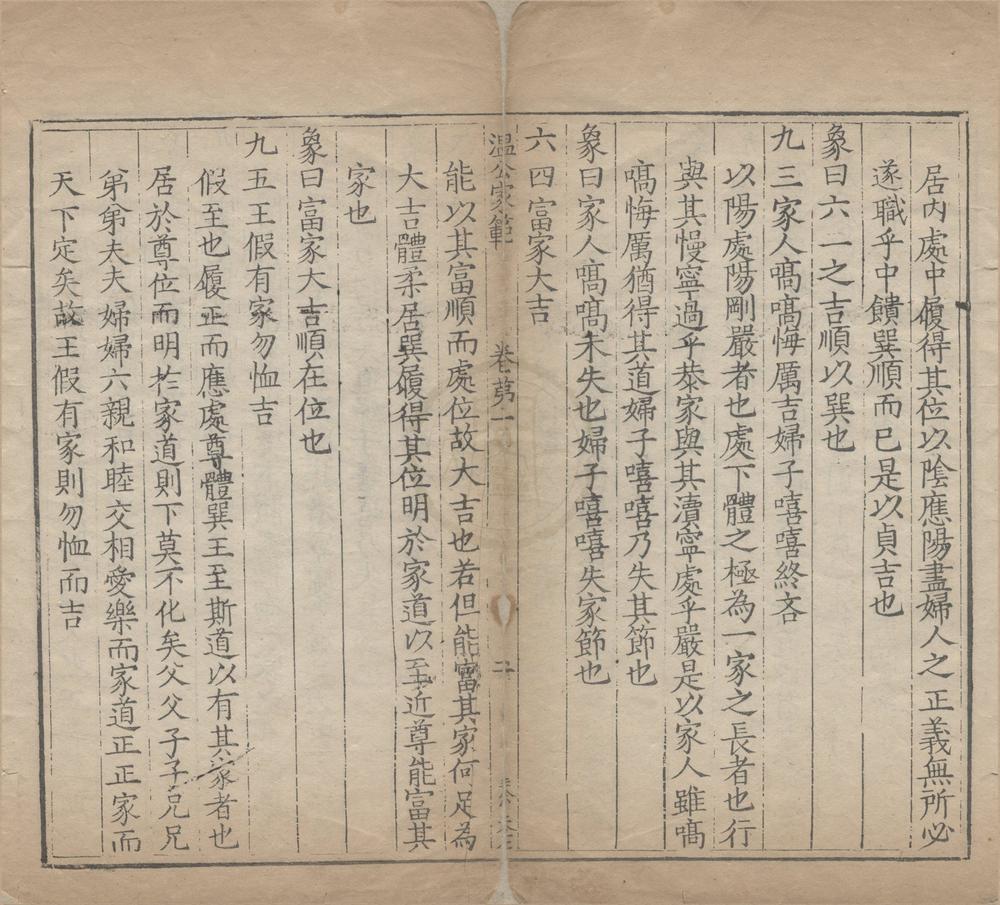 居內處中履得其位以陰應陽盡婦人之正義無所必
遂職乎中饋巽順而已是以貞吉也
象曰六二之吉順以巽也
九三家人嗃嗃悔厲吉婦子嘻嘻終吝
以陽處陽剛嚴者也處下體之極為一家之長者也行
與其慢寧過乎恭家與其瀆寧處乎嚴是以家人雖嗃
嗃悔厲猶得其道婦子嘻嘻乃失其節也
象曰家人嗃嗃未失也婦子嘻嘻失家節也
六四富家大吉
溫公家範 卷第一 二
能以其富順而處位故大吉也若但能富其家何足為
大吉體柔居巽履得其位明於家道以至近尊能富其
家也
象曰富家大吉順在位也
九五王假有家勿恤吉
假至也履正而應處尊體巽王至斯道以有其家者也
居於尊位而明於家道則下莫不化矣父父子子兄兄
弟弟夫夫婦婦六親和睦交相愛樂而家道正正家而
天下定矣故王假有家則勿恤而吉